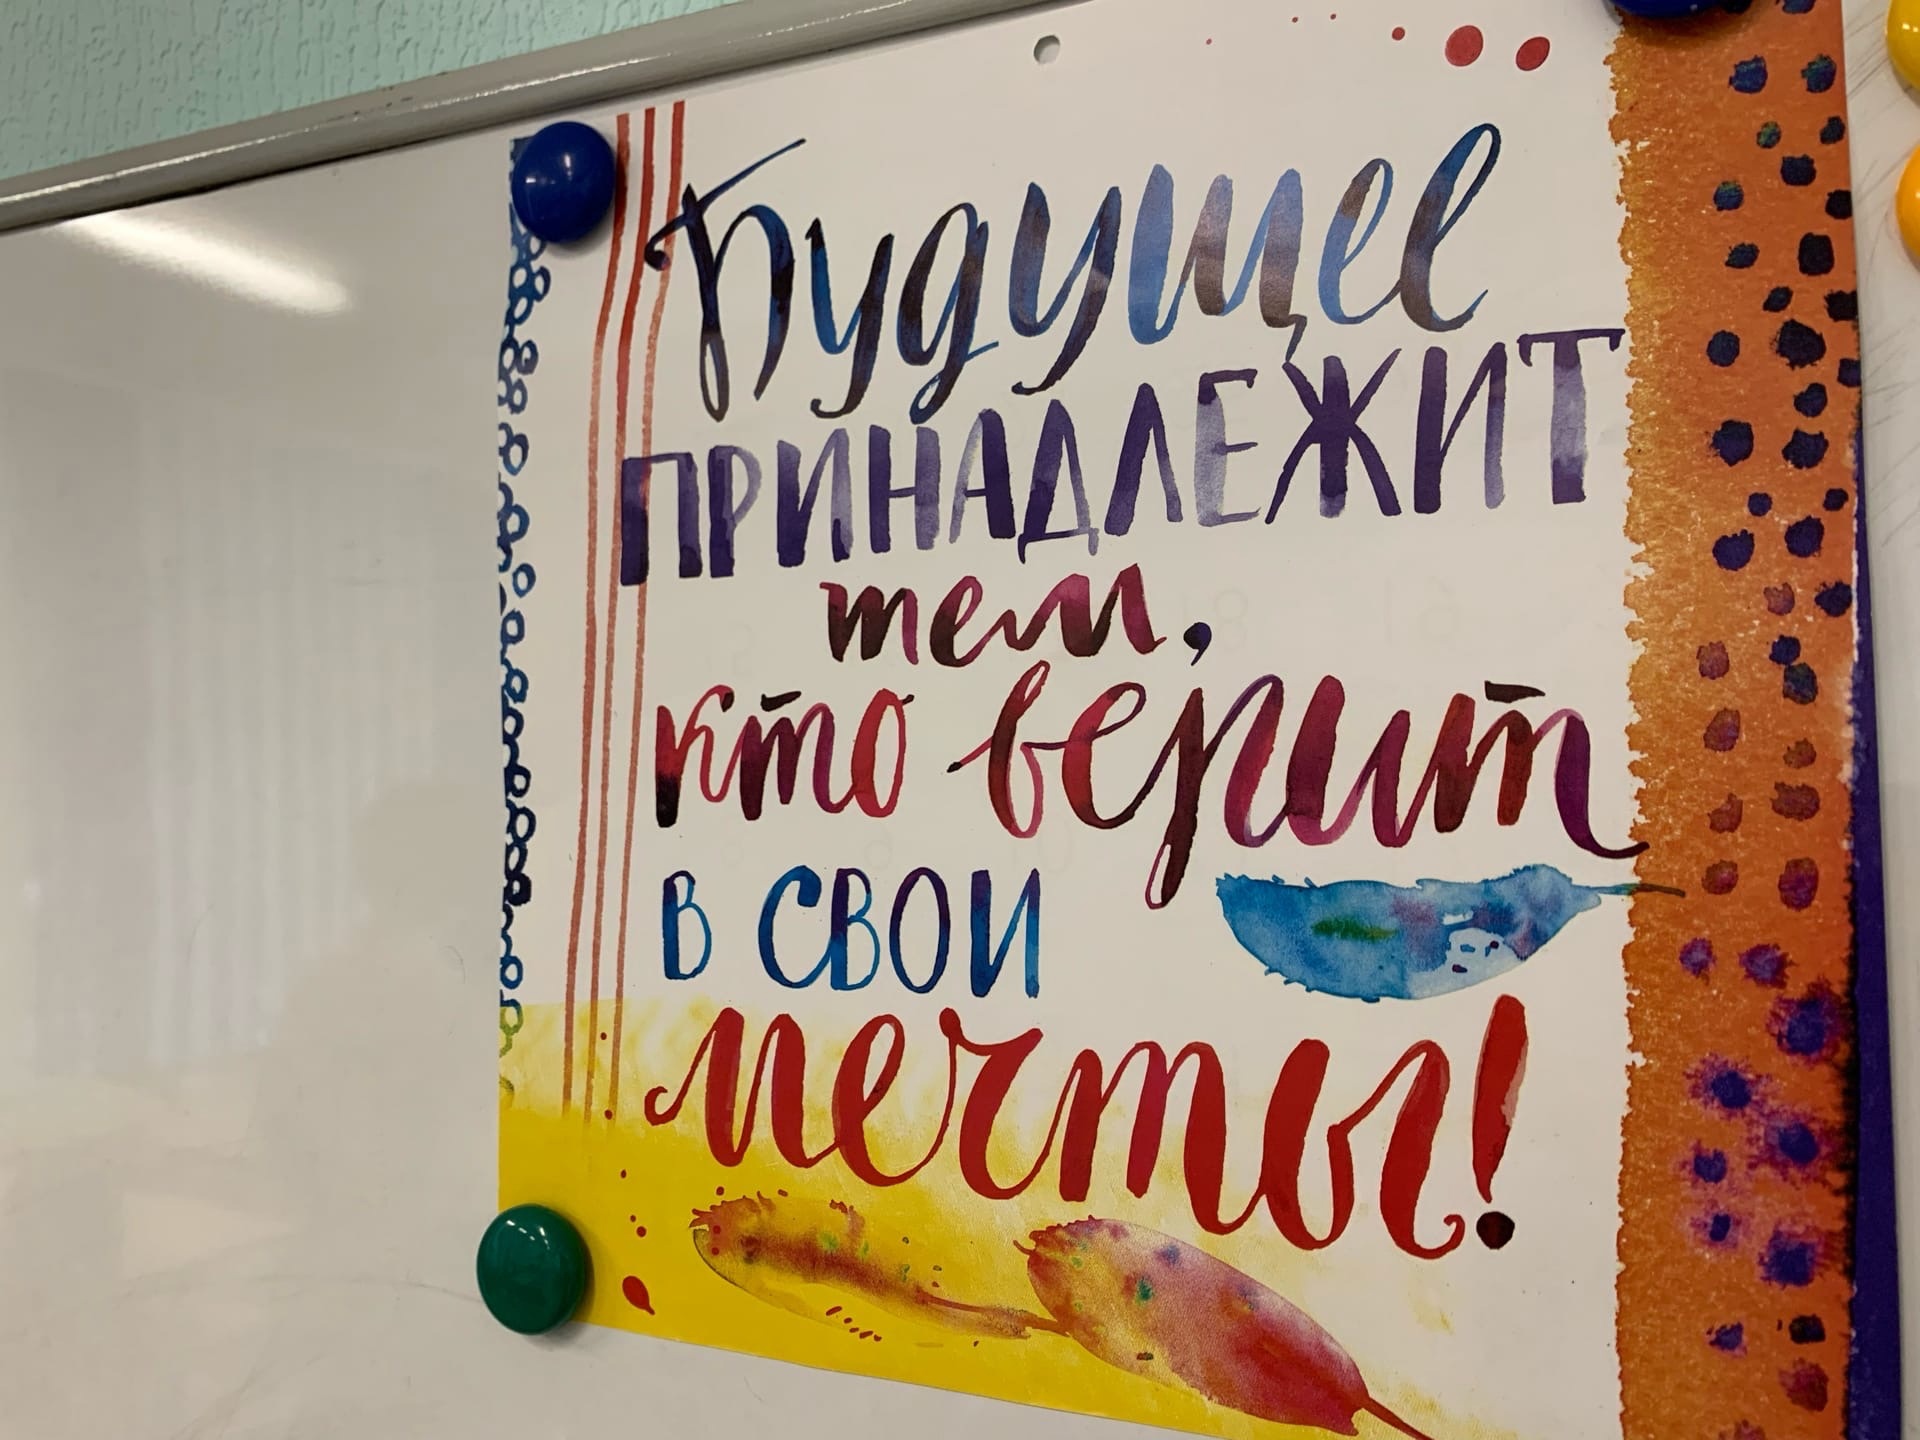 Будущее
ПРИНАДЛЕЖИТ
тем,
кто верит
в свои
мечты!